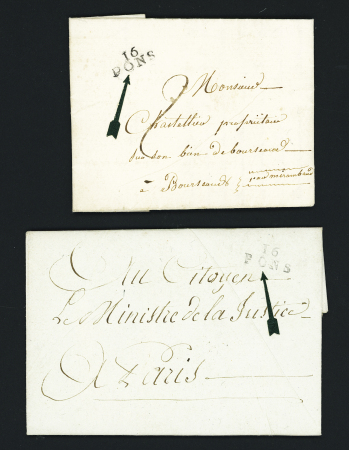 16
PONS
Monsieur
Chastellier propriétaire
sur son bien de bourseaud
à Bourseaud
16
PONS
Au Citoyen
Le Ministre de la Justice
A Paris